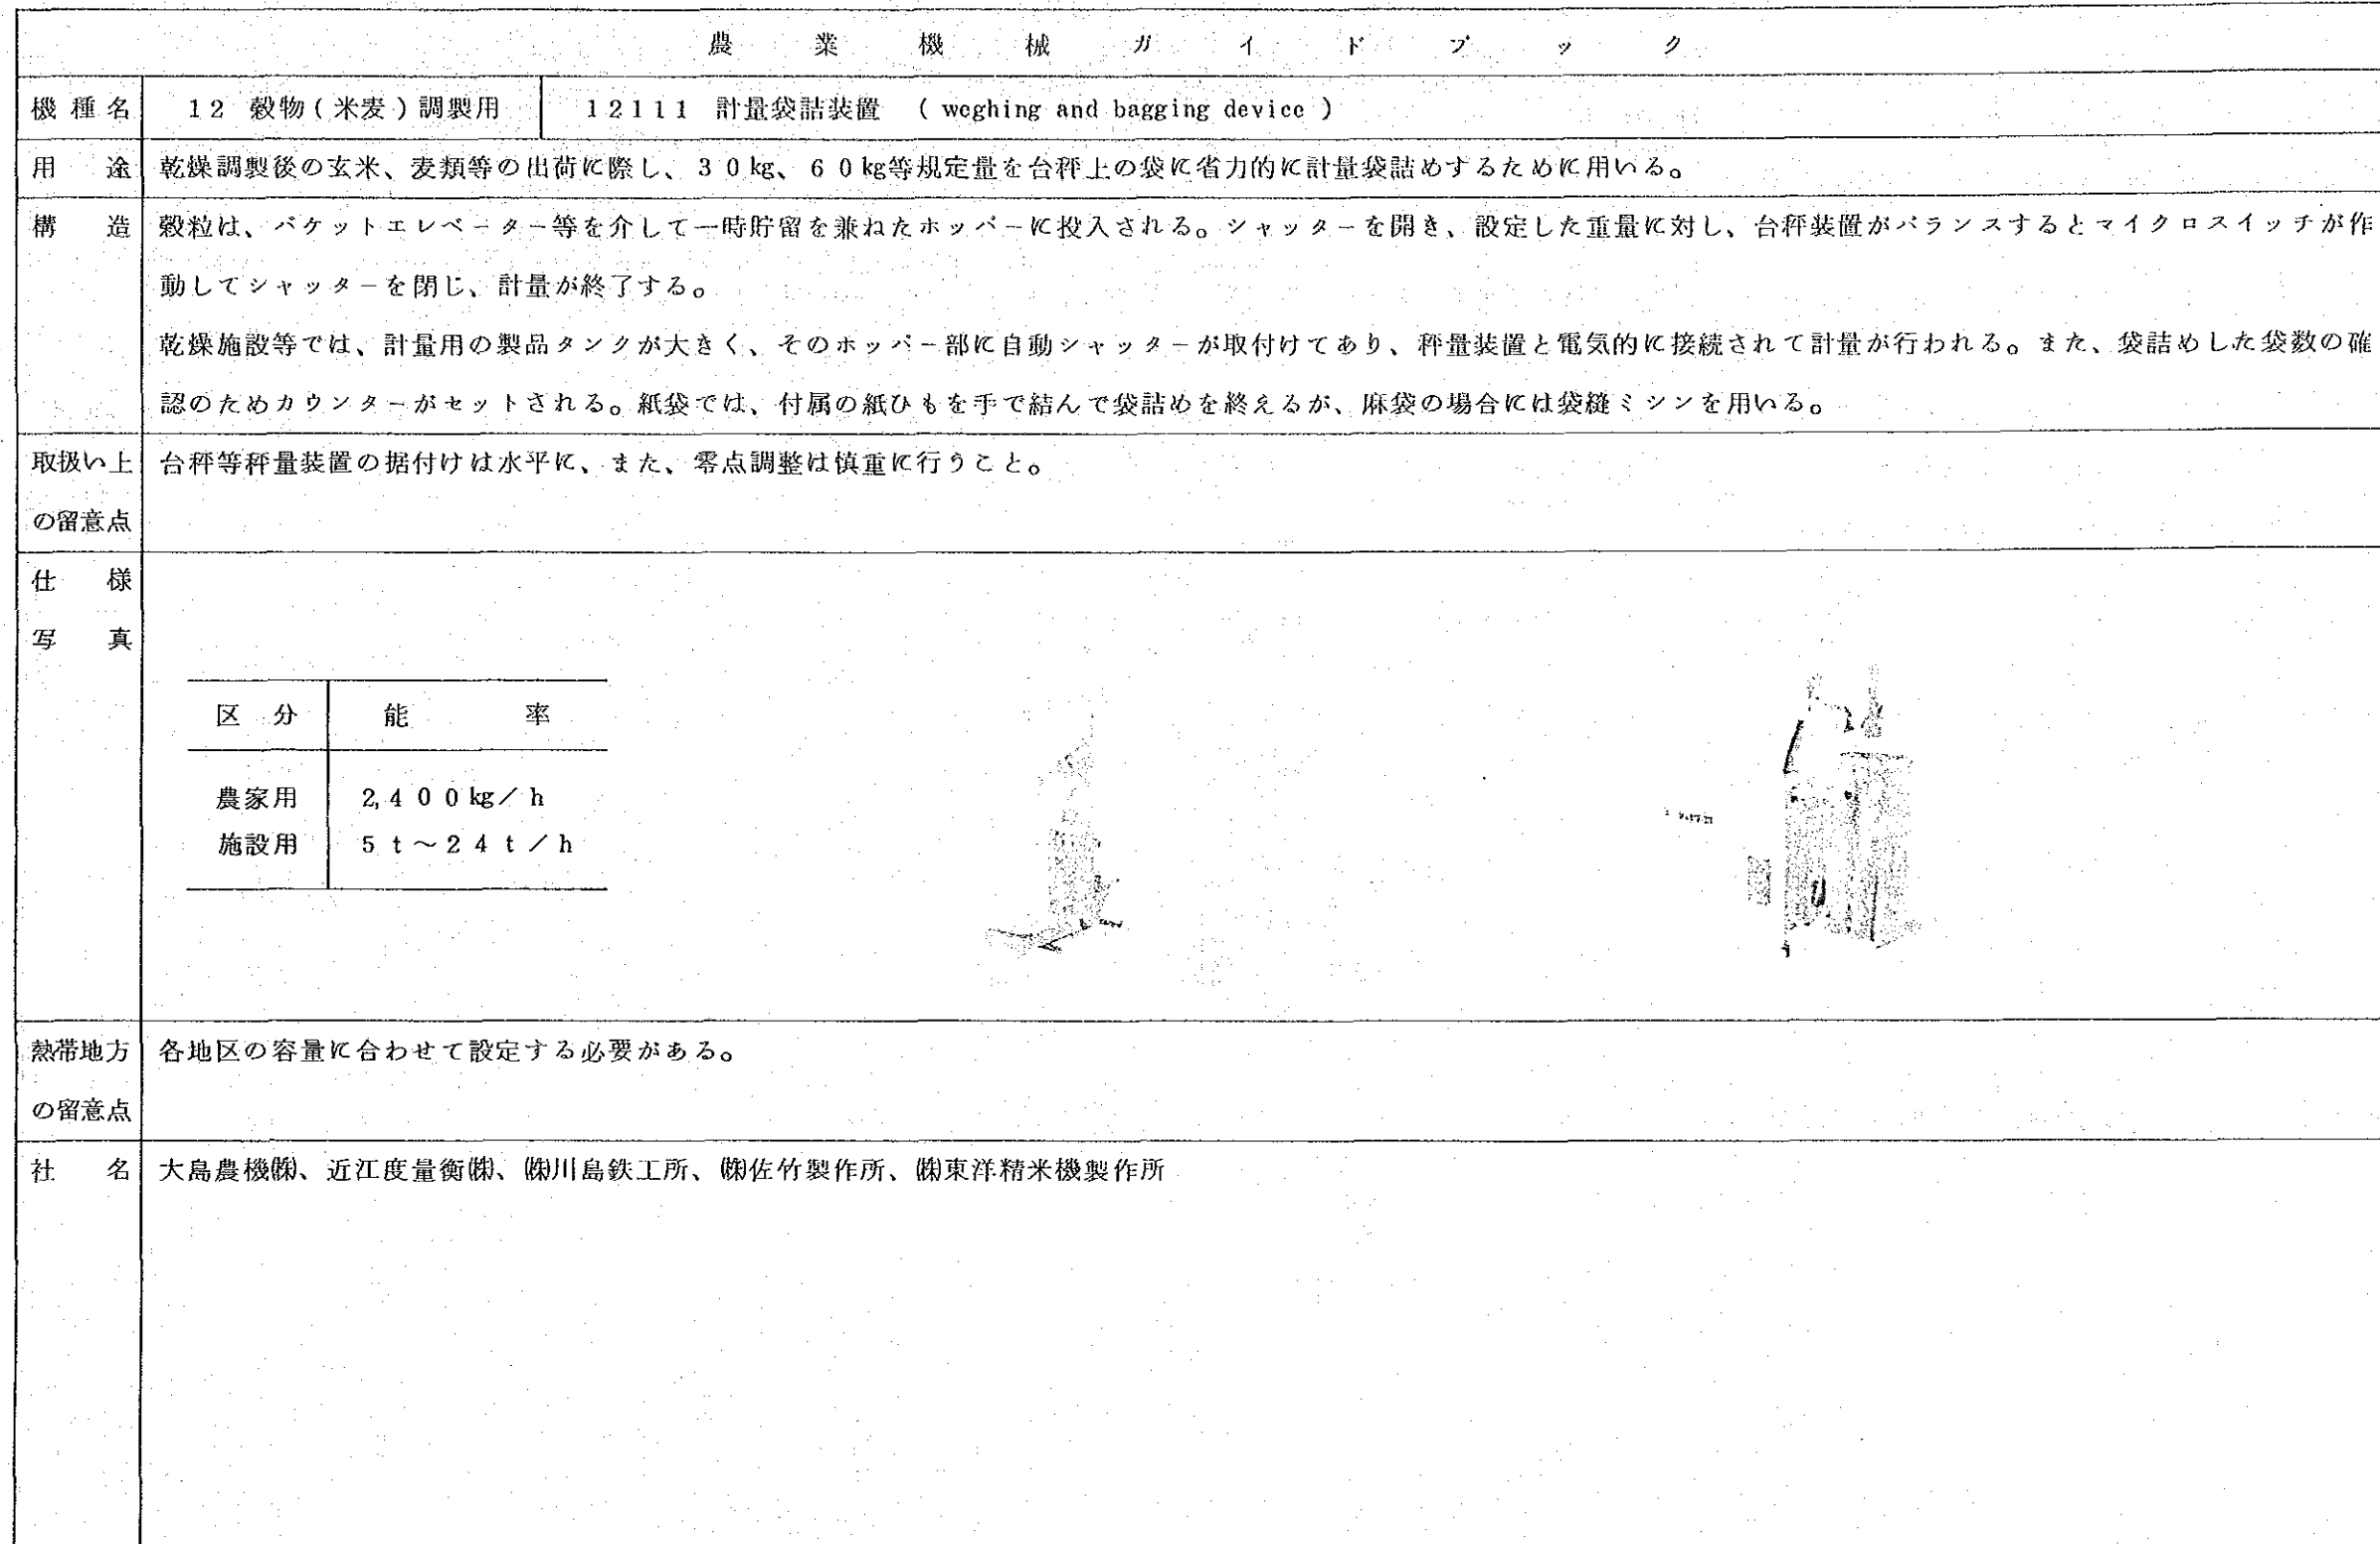 農業機械ガイドブック
機種名 12 穀物(米麦)調製用 12111 計量袋詰装置 ( weghing and bagging device )
用途 乾燥調製後の玄米、麦類等の出荷に際し、30kg、60kg等規定量を台秤上の袋に省力的に計量袋詰めするために用いる。
構造 穀粒は、バケットエレベーター等を介して一時貯留を兼ねたホッパーに投入される。シャッターを開き、設定した重量に対し、台秤装置がバランスするとマイクロスイッチが作
動してシャッターを閉じ、計量が終了する。
乾燥施設等では、計量用の製品タンクが大きく、そのホッパー部に自動シャッターが取付けてあり、秤量装置と電気的に接続されて計量が行われる。また、袋詰めした袋数の確
認のためカウンターがセットされる。紙袋では、付属の紙ひもを手で結んで袋詰めを終えるが、麻袋の場合には袋縫ミシンを用いる。
取扱い上 台秤等秤量装置の据付けは水平に、また、零点調整は慎重に行うこと。
の留意点
仕様
写真
区分 能率
農家用 2,400kg/h
施設用 5t～24t/h
熱帯地方 各地区の容量に合わせて設定する必要がある。
の留意点
社名 大島農機㈱、近江度量衡㈱、㈱川島鉄工所、㈱佐竹製作所、㈱東洋精米機製作所